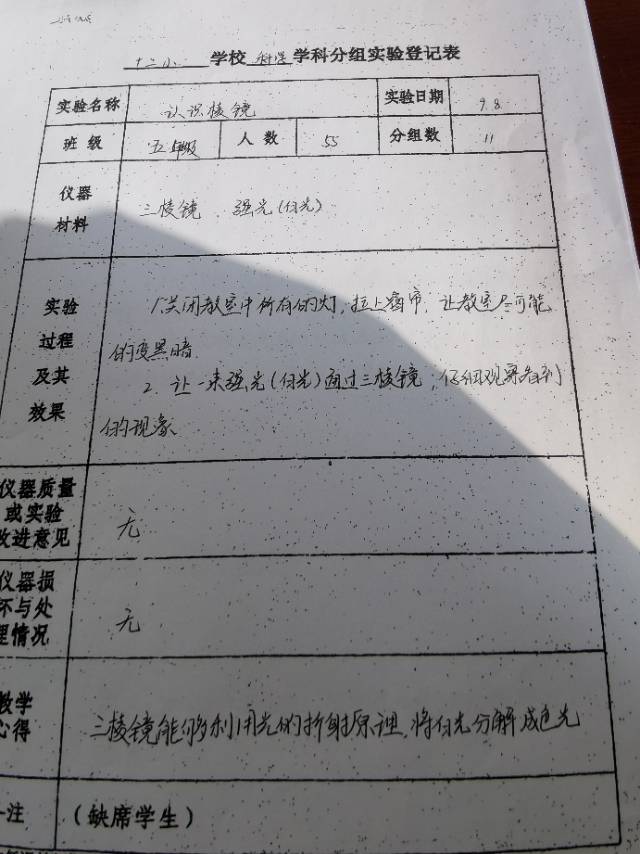 十二小 学校 科学 学科分组实验登记表
实验名称 认识棱镜 实验日期 9.8
班级 五年级 人数 55 分组数 11
仪器
材料
三棱镜、强光(白光)
实验
过程
及其
效果
1.关闭教室中所有的灯,拉上窗帘,让教室尽可能
的变黑暗.
2.让一束强光(白光)通过三棱镜,仔细观察看到
的现象
仪器质量
或实验
改进意见
无
仪器损
坏与处
理情况
无
教学
心得
三棱镜能够利用光的折射原理,将白光分解成色光
注
(缺席学生)